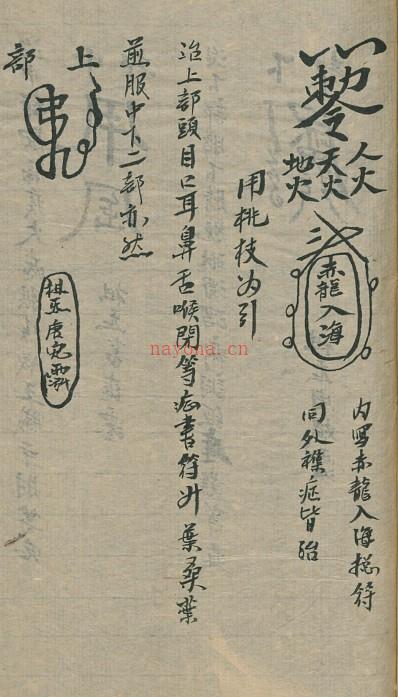 敕令
人火
天火
地火
赤龍入海
内写赤龍入海捴符
同外襍症皆治
用桃枝为引
治上部頭目口耳鼻舌喉閉等症書符卅葉桑葉
煎服中下二部亦然
上部
nayona.cn